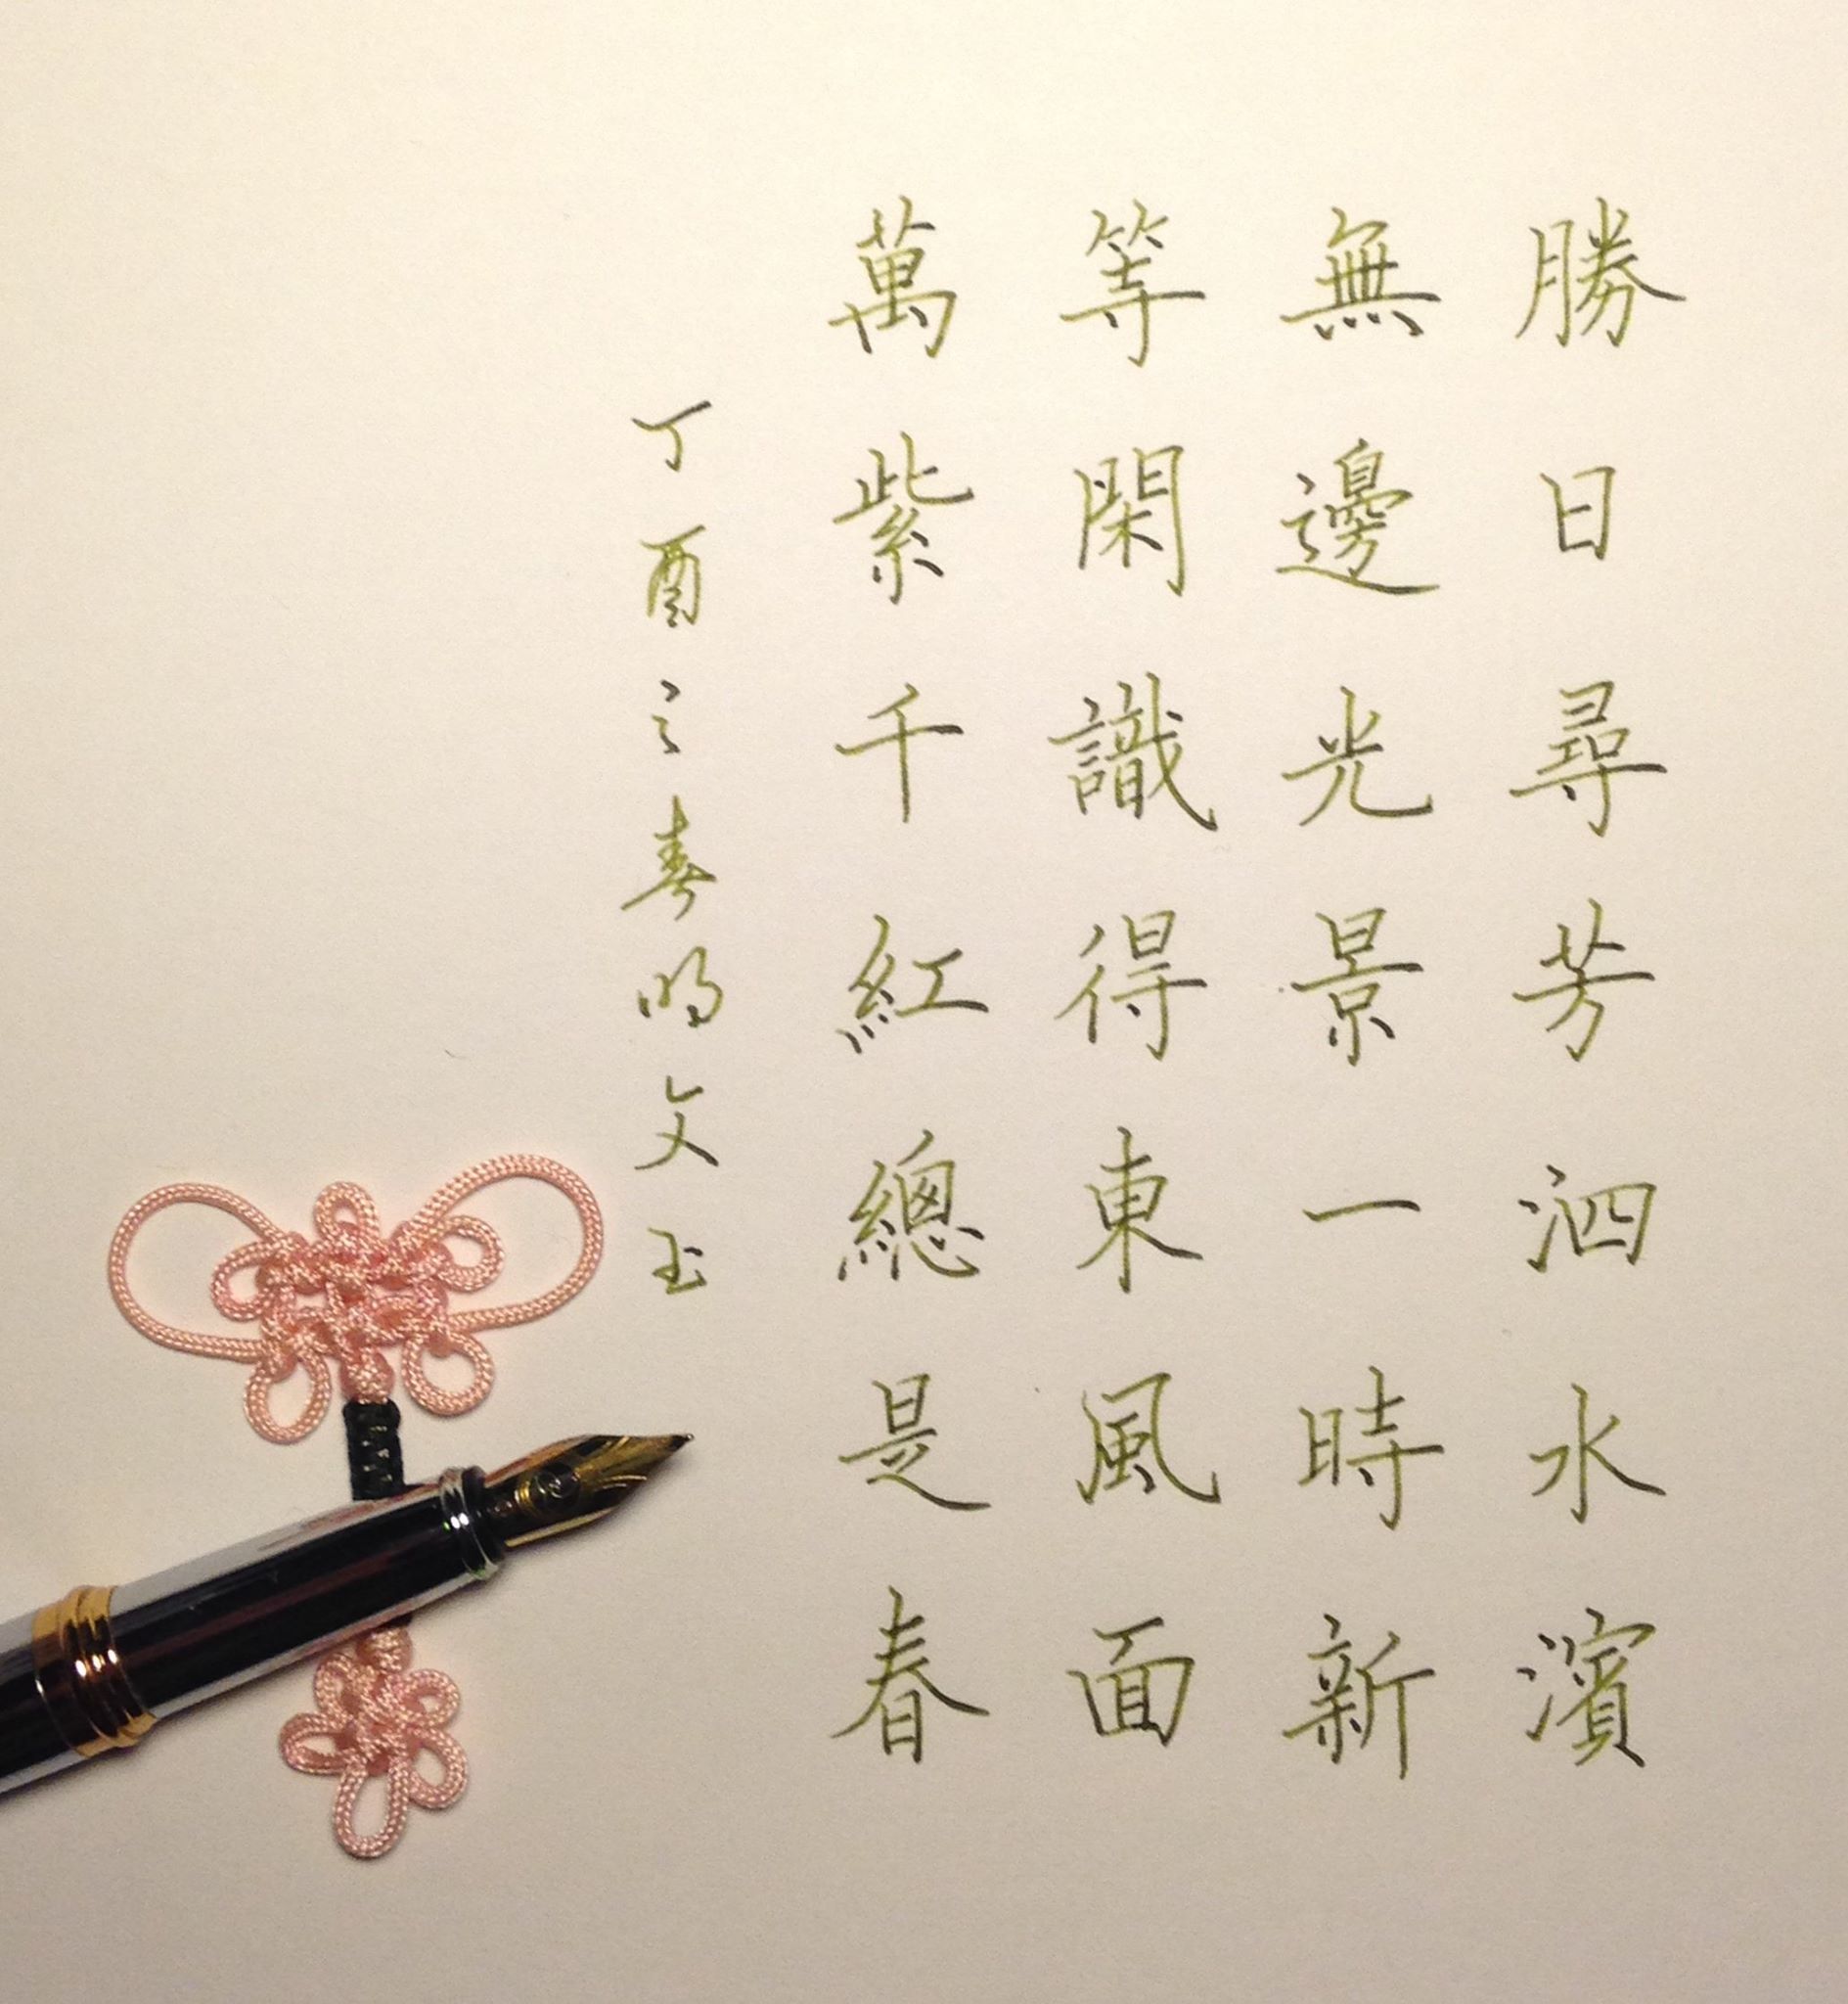 勝日尋芳泗水濱
無邊光景一時新
等閑識得東風面
萬紫千紅總是春
丁酉之春明文玉